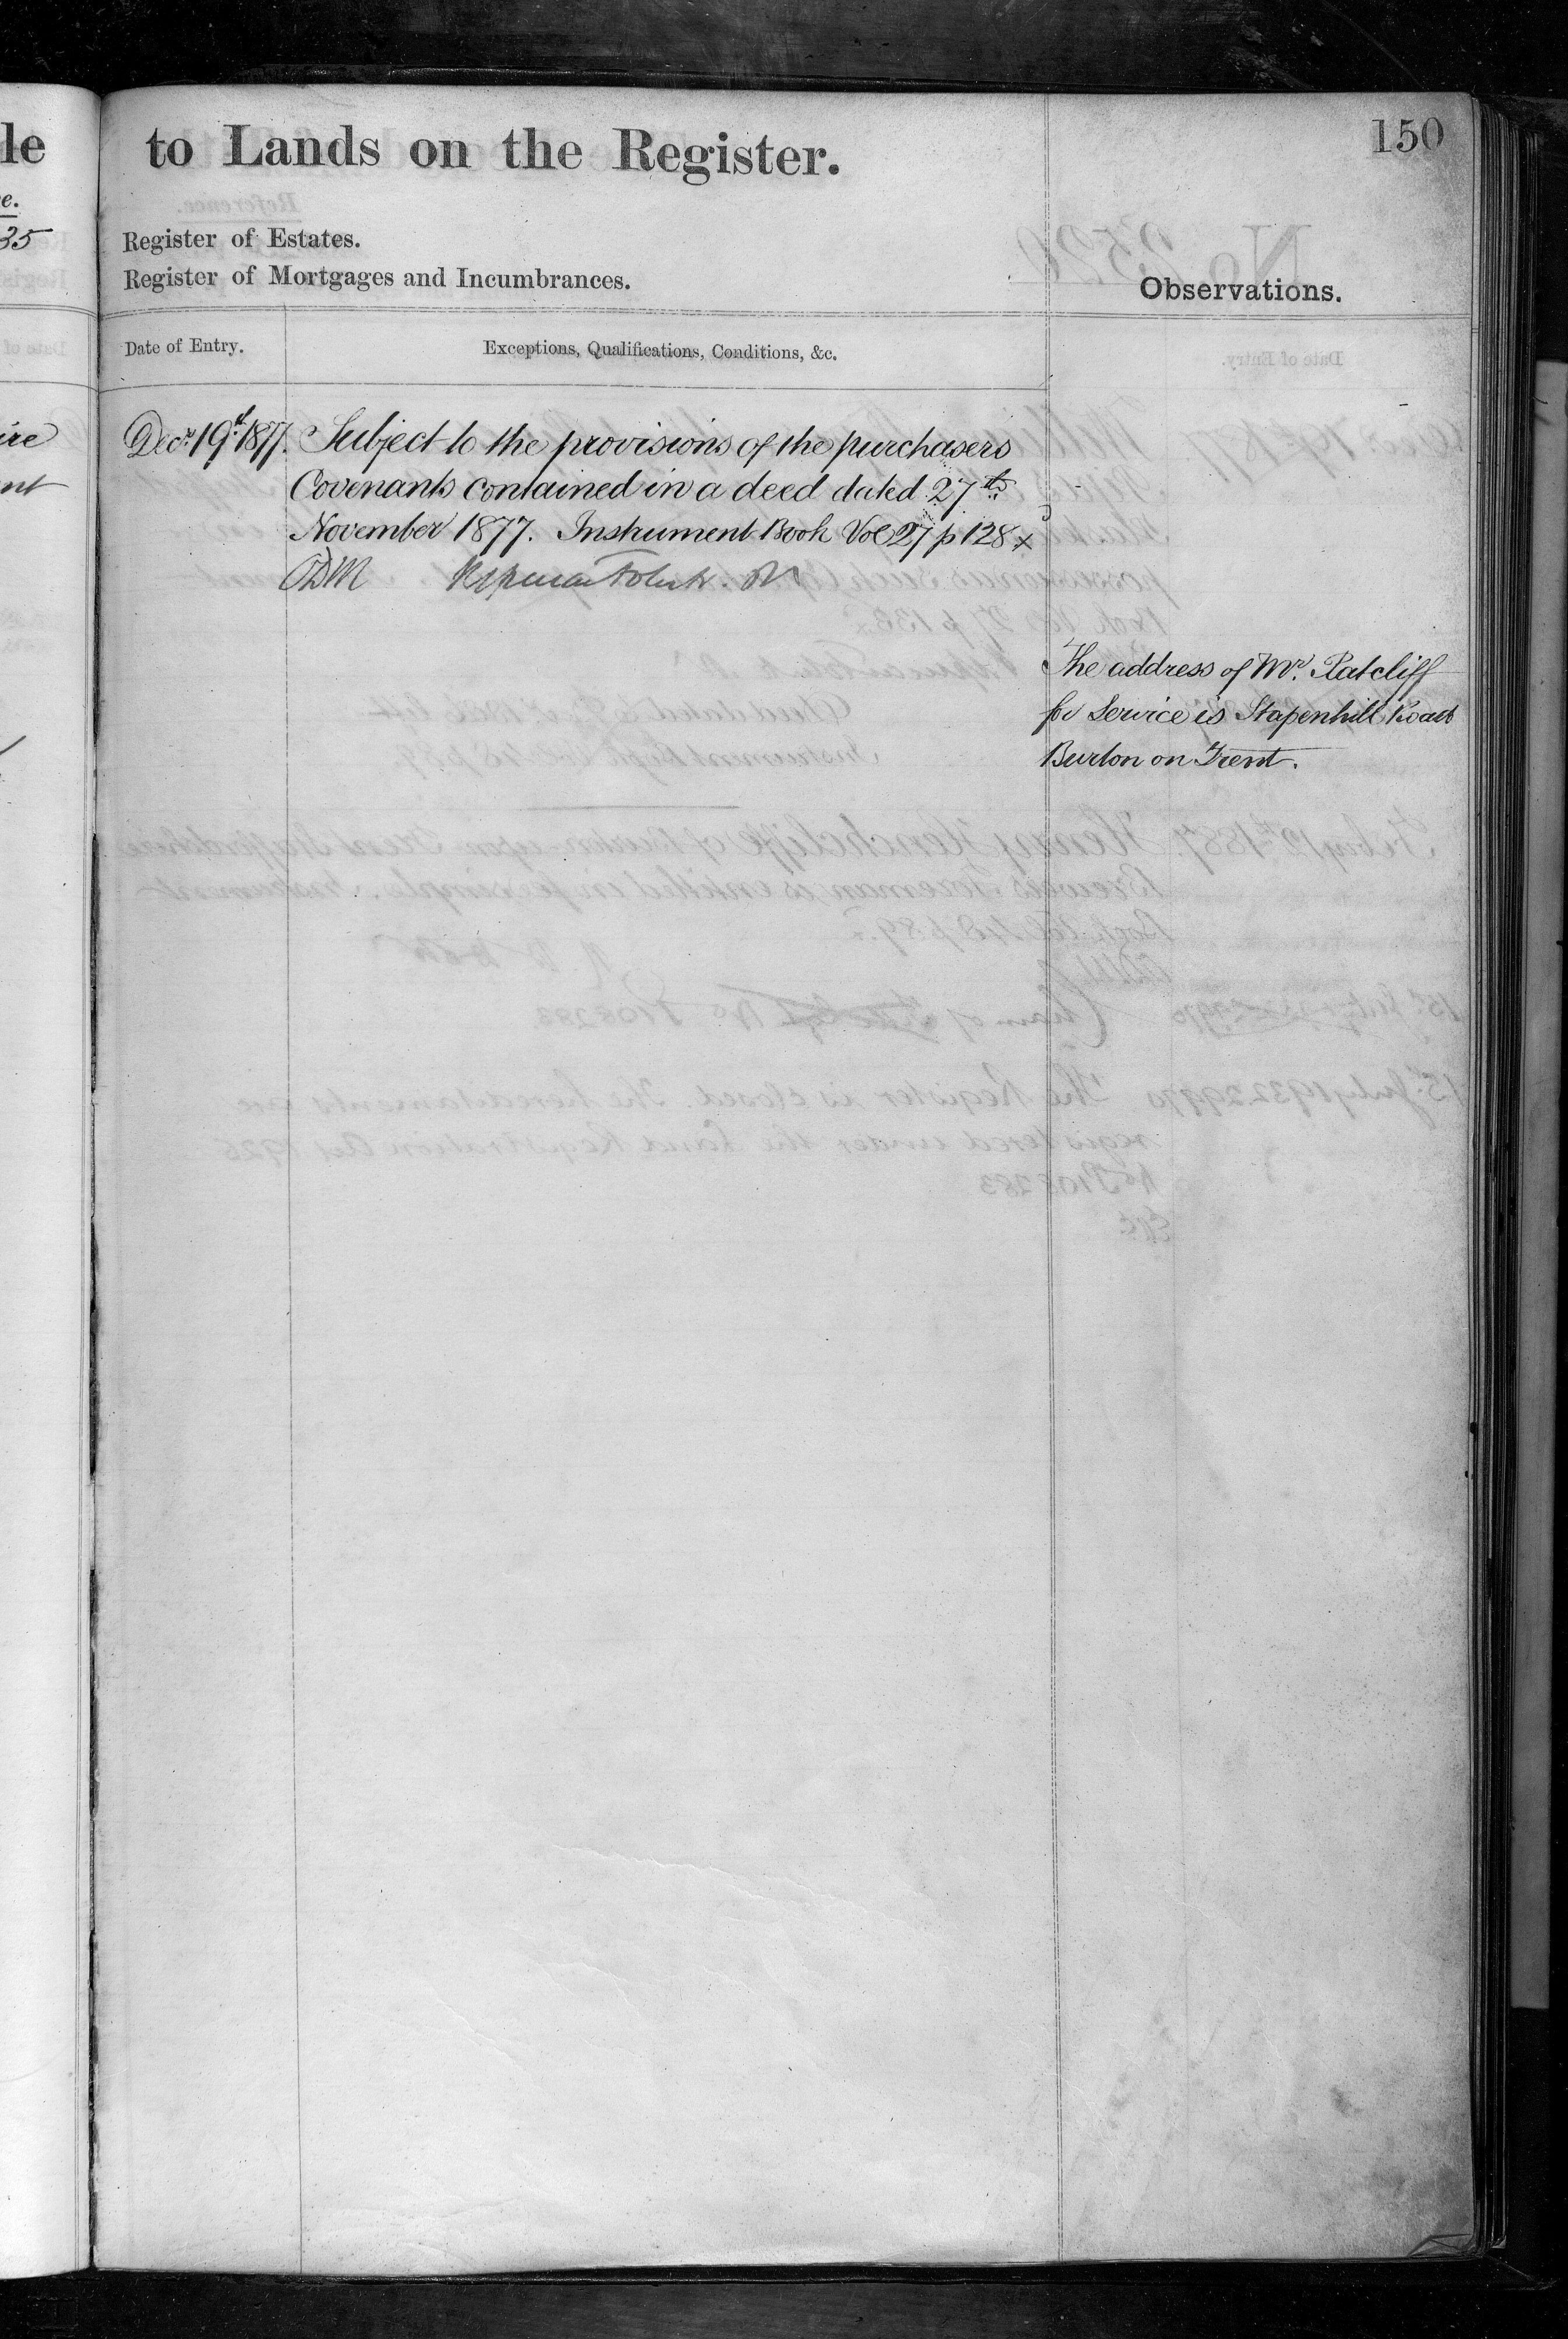 le
to Lands on the Register.
150
e.
35
Register of Estates.
Register of Mortgages and Incumbrances.
Observations.
Date of Entry.
Exceptions, Qualifications, Conditions, &c.
ire
nt
Decr. 19th 1877. Subject to the provisions of the purchasers
Covenants contained in a deed dated 27th
November 1877. Instrument Book Vol 27 p 128 x
The address of Mr. Ratcliff
for Service is Stapenhill Road
Burton on Trent.